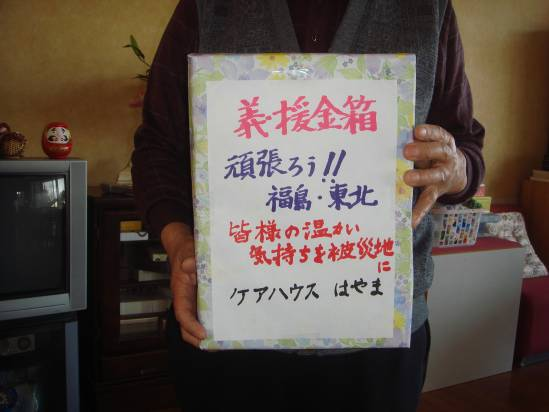 義援金箱
頑張ろう!!
福島・東北
皆様の温かい
気持ちを被災地
に
ケアハウス はやま